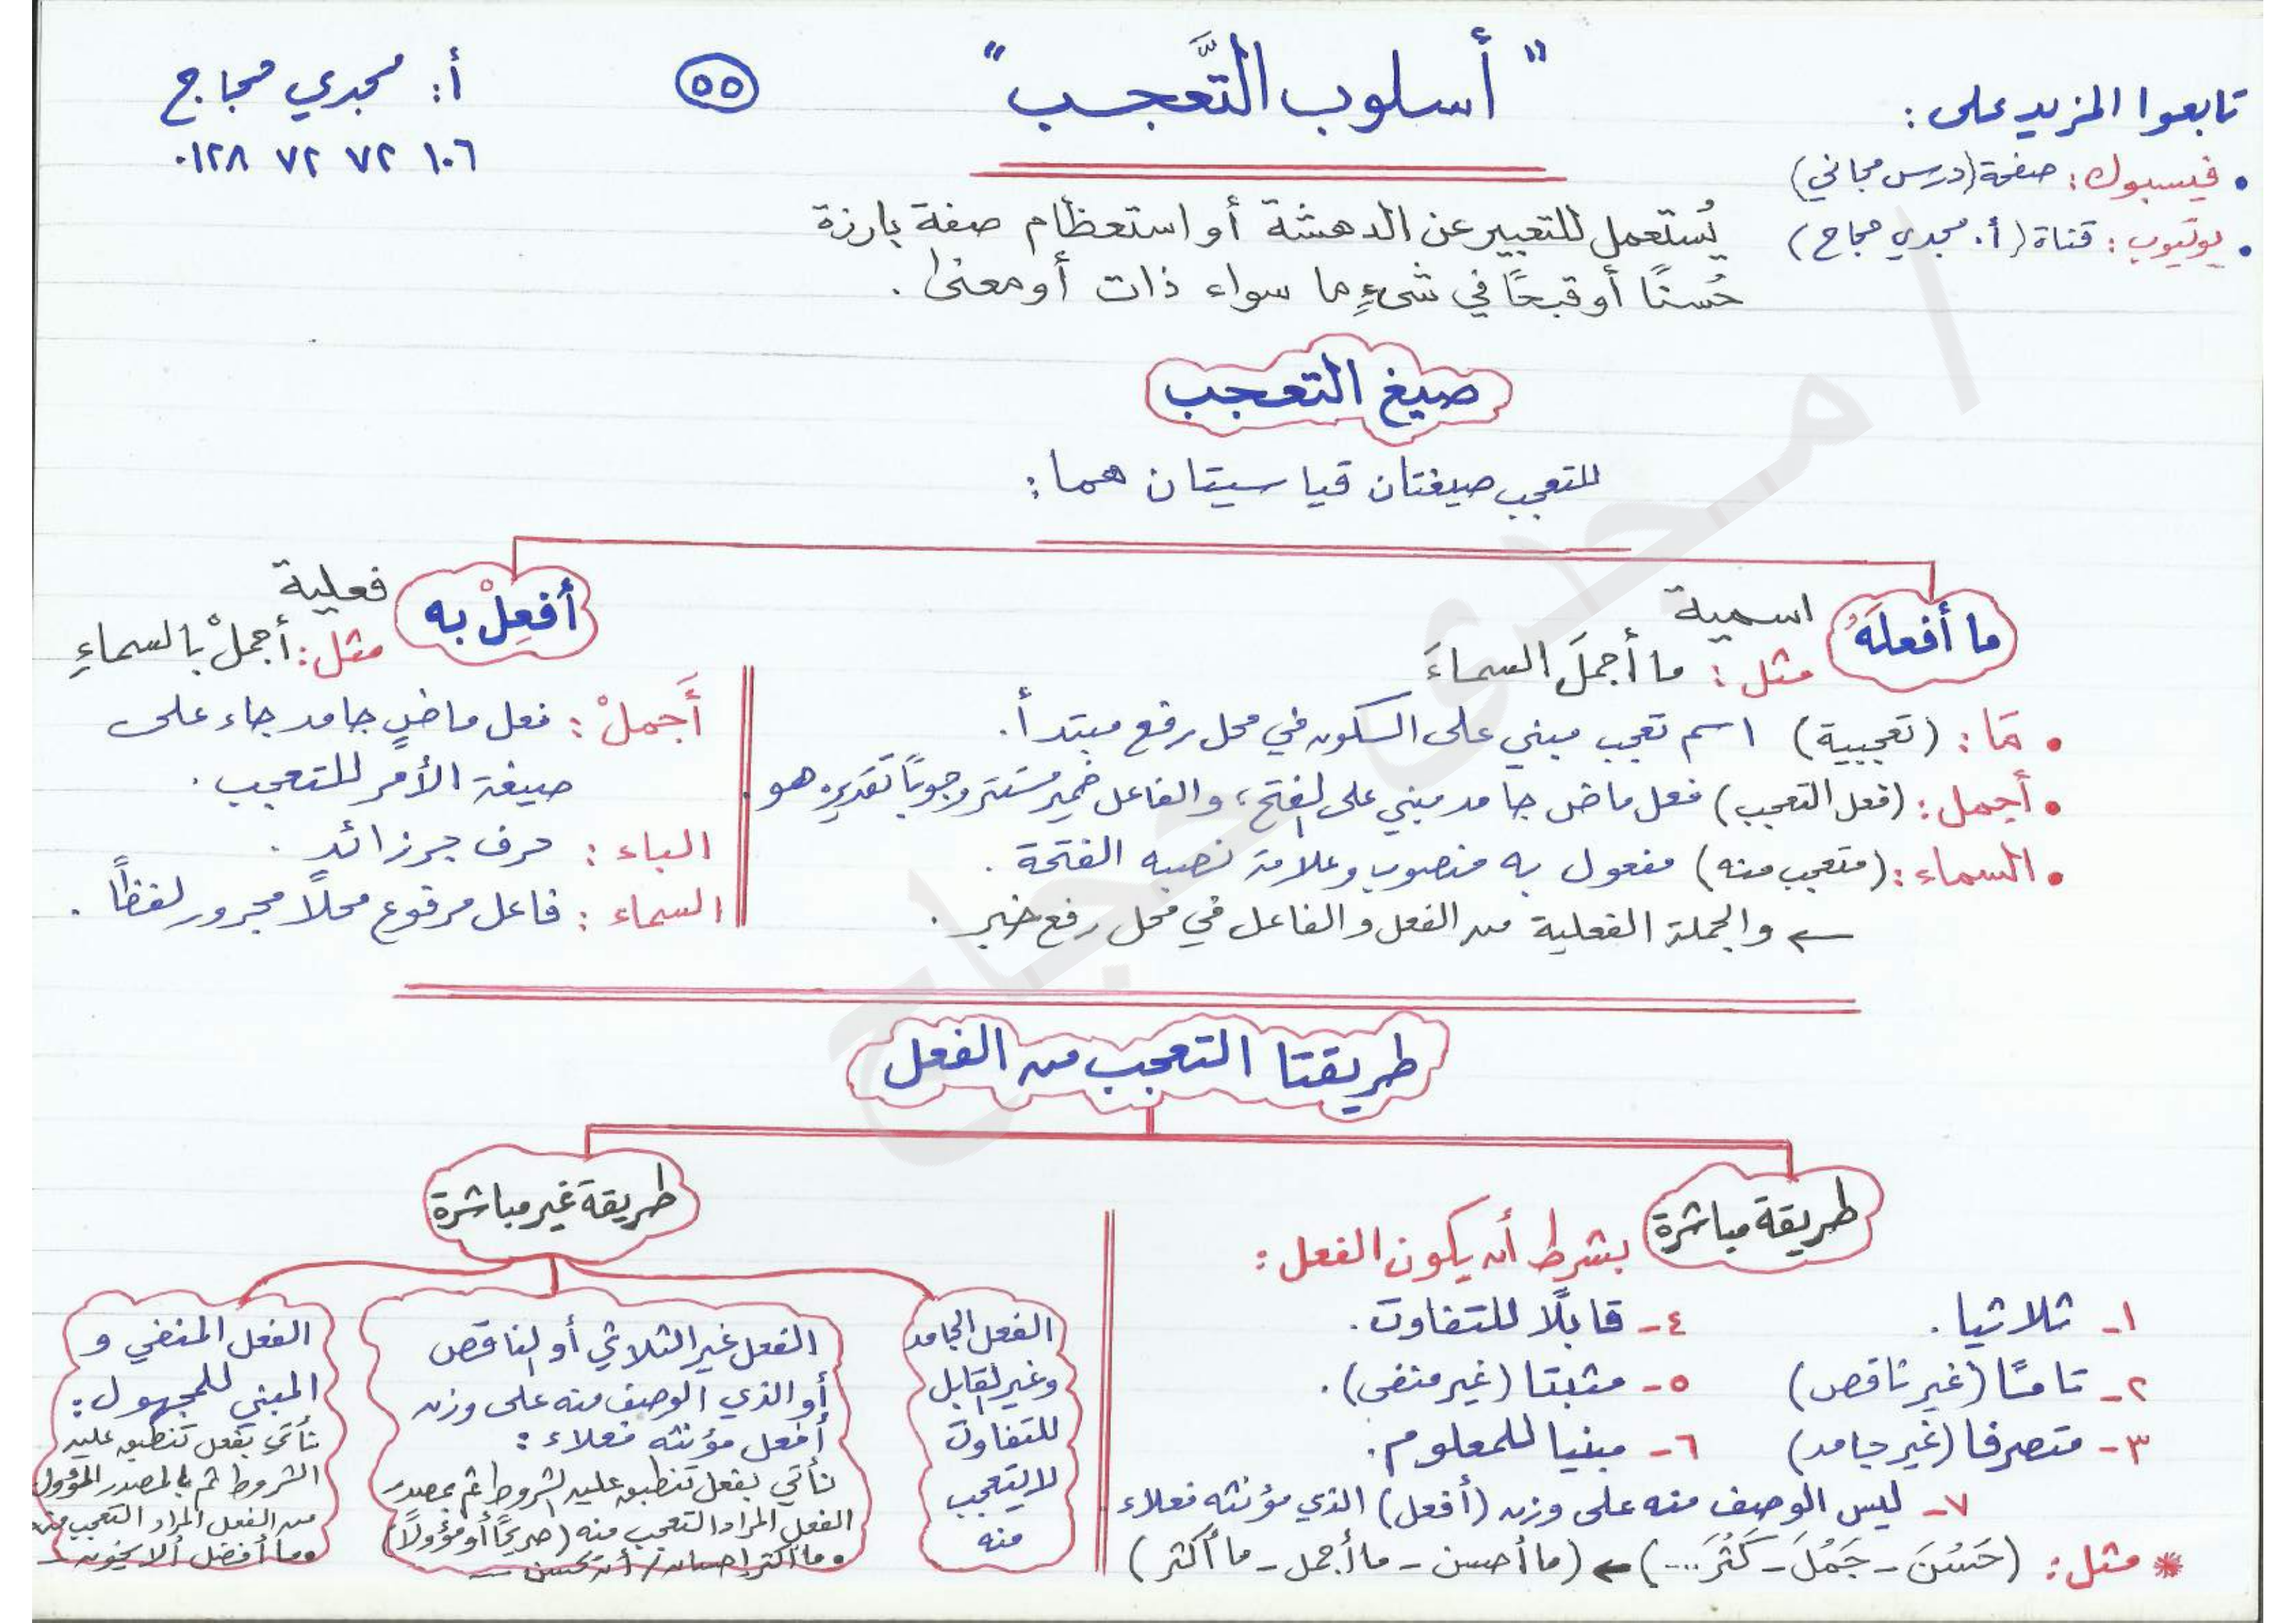 تابعوا المزيد على:
• فيسبوك: صفحة (درس مجاني)
• يوتيوب: قناة (أ. مجدي حجاج)
" أسلوب التَّعجب "
٥٥
أ: مجدي حجاج
٠١٢٨ ٧٢ ٧٢ ١٠٦
يُستعمل للتعبير عن الدهشة أو استعظام صفة بارزة
حُسنًا أو قبحًا في شيءٍ ما سواء ذات أو معنى .
صيغ التعجب
للتعجب صيغتان قياسيتان هما:
ما أفعلَهُ
اسمية
مثل: ما أجملَ السماءَ
• مَا: (تعجبية) اسم تعجب مبني على السكون في محل رفع مبتدأ.
• أجمل: (فعل التعجب) فعل ماض جامد مبني على الفتح، والفاعل ضمير مستتر وجوبًا تقديره هو.
• السماء: (متعجب منه) مفعول به منصوب وعلامة نصبه الفتحة .
← والجملة الفعلية من الفعل والفاعل في محل رفع خبر .
أفعِلْ به
فعلية
مثل: أجملْ بالسماءِ
أَجملْ: فعل ماضٍ جامد جاء على
صيغة الأمر للتعجب .
الباء: حرف جر زائد .
السماء: فاعل مرفوع محلًا مجرور لفظًا .
طريقتا التعجب من الفعل
طريقة مباشرة
بشرط أن يكون الفعل:
١- ثلاثيا .
٤- قابلًا للتفاوت .
٢- تامًا (غير ناقص)
٥- مثبتا (غير منفى) .
٣- متصرفا (غير جامد)
٦- مبنيا للمعلوم .
٧- ليس الوصف منه على وزن (أفعل) الذي مؤنثه فعلاء .
* مثل: (حَسُنَ - جَمُلَ - كَثُرَ ....) ← (ما أحسن - ما أجمل - ما أكثر)
طريقة غير مباشرة
الفعل الجامد
وغير القابل
للتفاوت
لا يتعجب
منه
الفعل غير الثلاثي أو الناقص
أو الذي الوصف منه على وزن
أفعل مؤنثه فعلاء:
نأتي بفعل تنطبق عليه الشروط ثم بمصدر
الفعل المراد التعجب منه (صريحًا أو مؤولًا)
• ما أكثر إحسان / أن تحسن
الفعل المنفي و
المبني للمجهول:
نأتي بفعل تنطبق عليه
الشروط ثم بالمصدر المؤول
من الفعل المراد التعجب منه
• ما أفضل ألا يخون
أ / مجدى حجاج